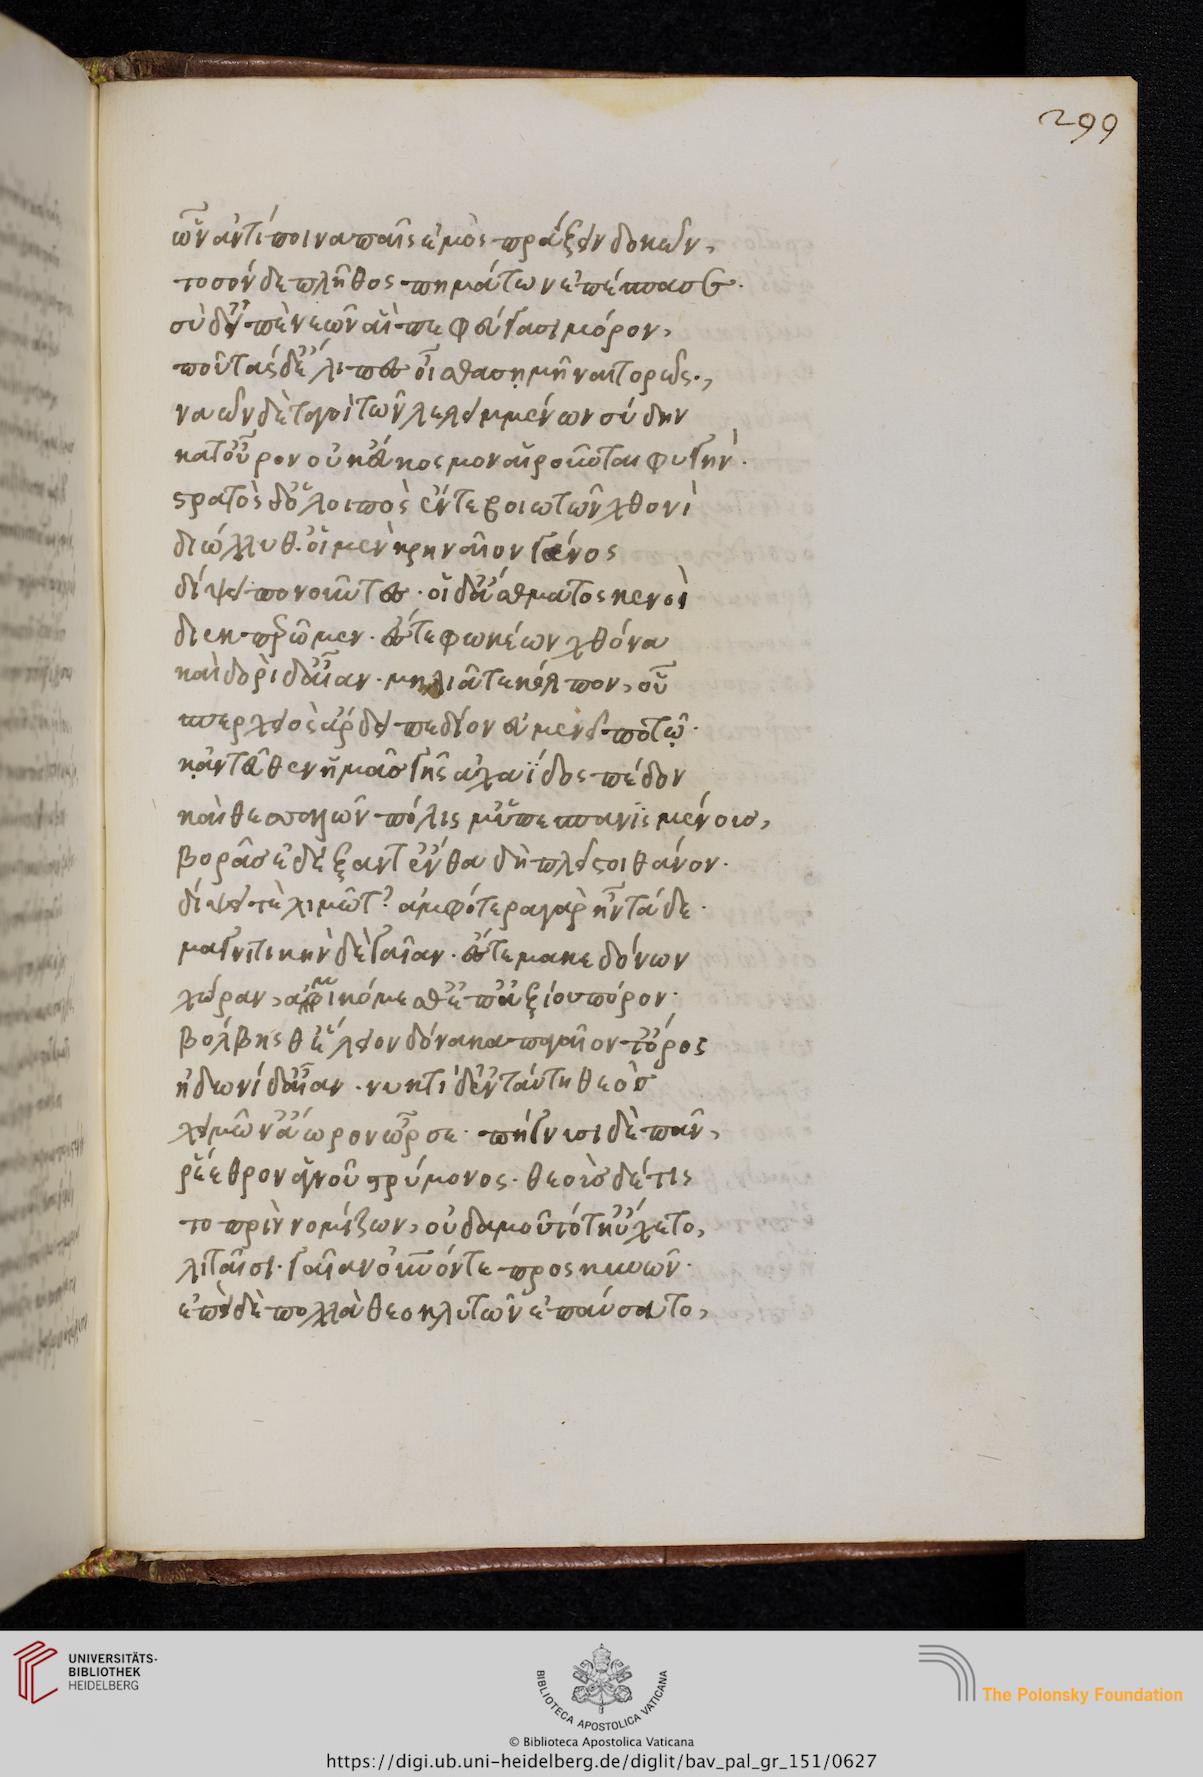 299
ὧν ἀντίποινα παῖς ἐμὸς πράξειν δοκῶν,
τοσόνδε πλῆθος πημάτων ἐπέσπασεν.
σὺ δ' εἰπὲ νεῶν αἳ πεφεύγασι μόρον,
ποῦ τάσδ' ἔλιπες οἶσθα σημῆναι τορῶς.,
ναῶν δὲ ταγοὶ τῶν λελειμμένων σύδην
κατ' οὖρον οὐκ εὔκοσμον αἴρονται φυγήν.
στρατὸς δ' ὁ λοιπὸς ἔν τε βοιωτῶν χθονὶ
διώλλυθ. οἱ μὲν κρηναῖον γάνος
δίψει πονοῦντες. οἱ δ' ἄσθματος κενοὶ
διεκπερῶμεν. ἔς τε φωκέων χθόνα
καὶ δωρίδ' αἶαν. μηλιᾶ τε κόλπον, οὗ
σπερχειὸς ἄρδει πεδίον εὐμενεῖ ποτῷ.
κἀντεῦθεν ἡμᾶς γῆς ἀχαΐδος πέδον
καὶ θεσσαλῶν πόλις μ' ὑπεσπανισμένους,
βορᾶς ἐδέξαντ' ἔνθα δὴ πλεῖστοι θάνον.
δίψει τὲ λιμῶ τ' ἀμφότερα γὰρ ἦν τάδε.
μαγνιτικὴν δὲ γαῖαν. ἔς τε μακεδόνων
χώραν, ἀφικόμεσθ' ἐπ' ἀξίου πόρον.
βόλβης θ' ἕλειον δόνακα παγαῖόν τ' ὄρος
ἠδωνίδ' αἶαν. νυκτὶ δ' ἐν ταύτη θεὸς
χειμῶν' ἄωρον ὦρσε. πήγνυσι δὲ πᾶν,
ῥέεθρον ἁγνοῦ στρύμονος. θεοὺς δέ τις
τοπρὶν νομίζων, οὐδαμοῦ τότ' ηὔχετο,
λιταῖσι. γαῖαν οὐρανόν τε προσκυνῶν.
ἐπεὶ δὲ πολλὰ θεοκλυτῶν ἐπαύσατο,
UNIVERSITÄTS-
BIBLIOTHEK
HEIDELBERG
BIBLIOTECA APOSTOLICA VATICANA
The Polonsky Foundation
© Biblioteca Apostolica Vaticana
https://digi.ub.uni-heidelberg.de/diglit/bav_pal_gr_151/0627